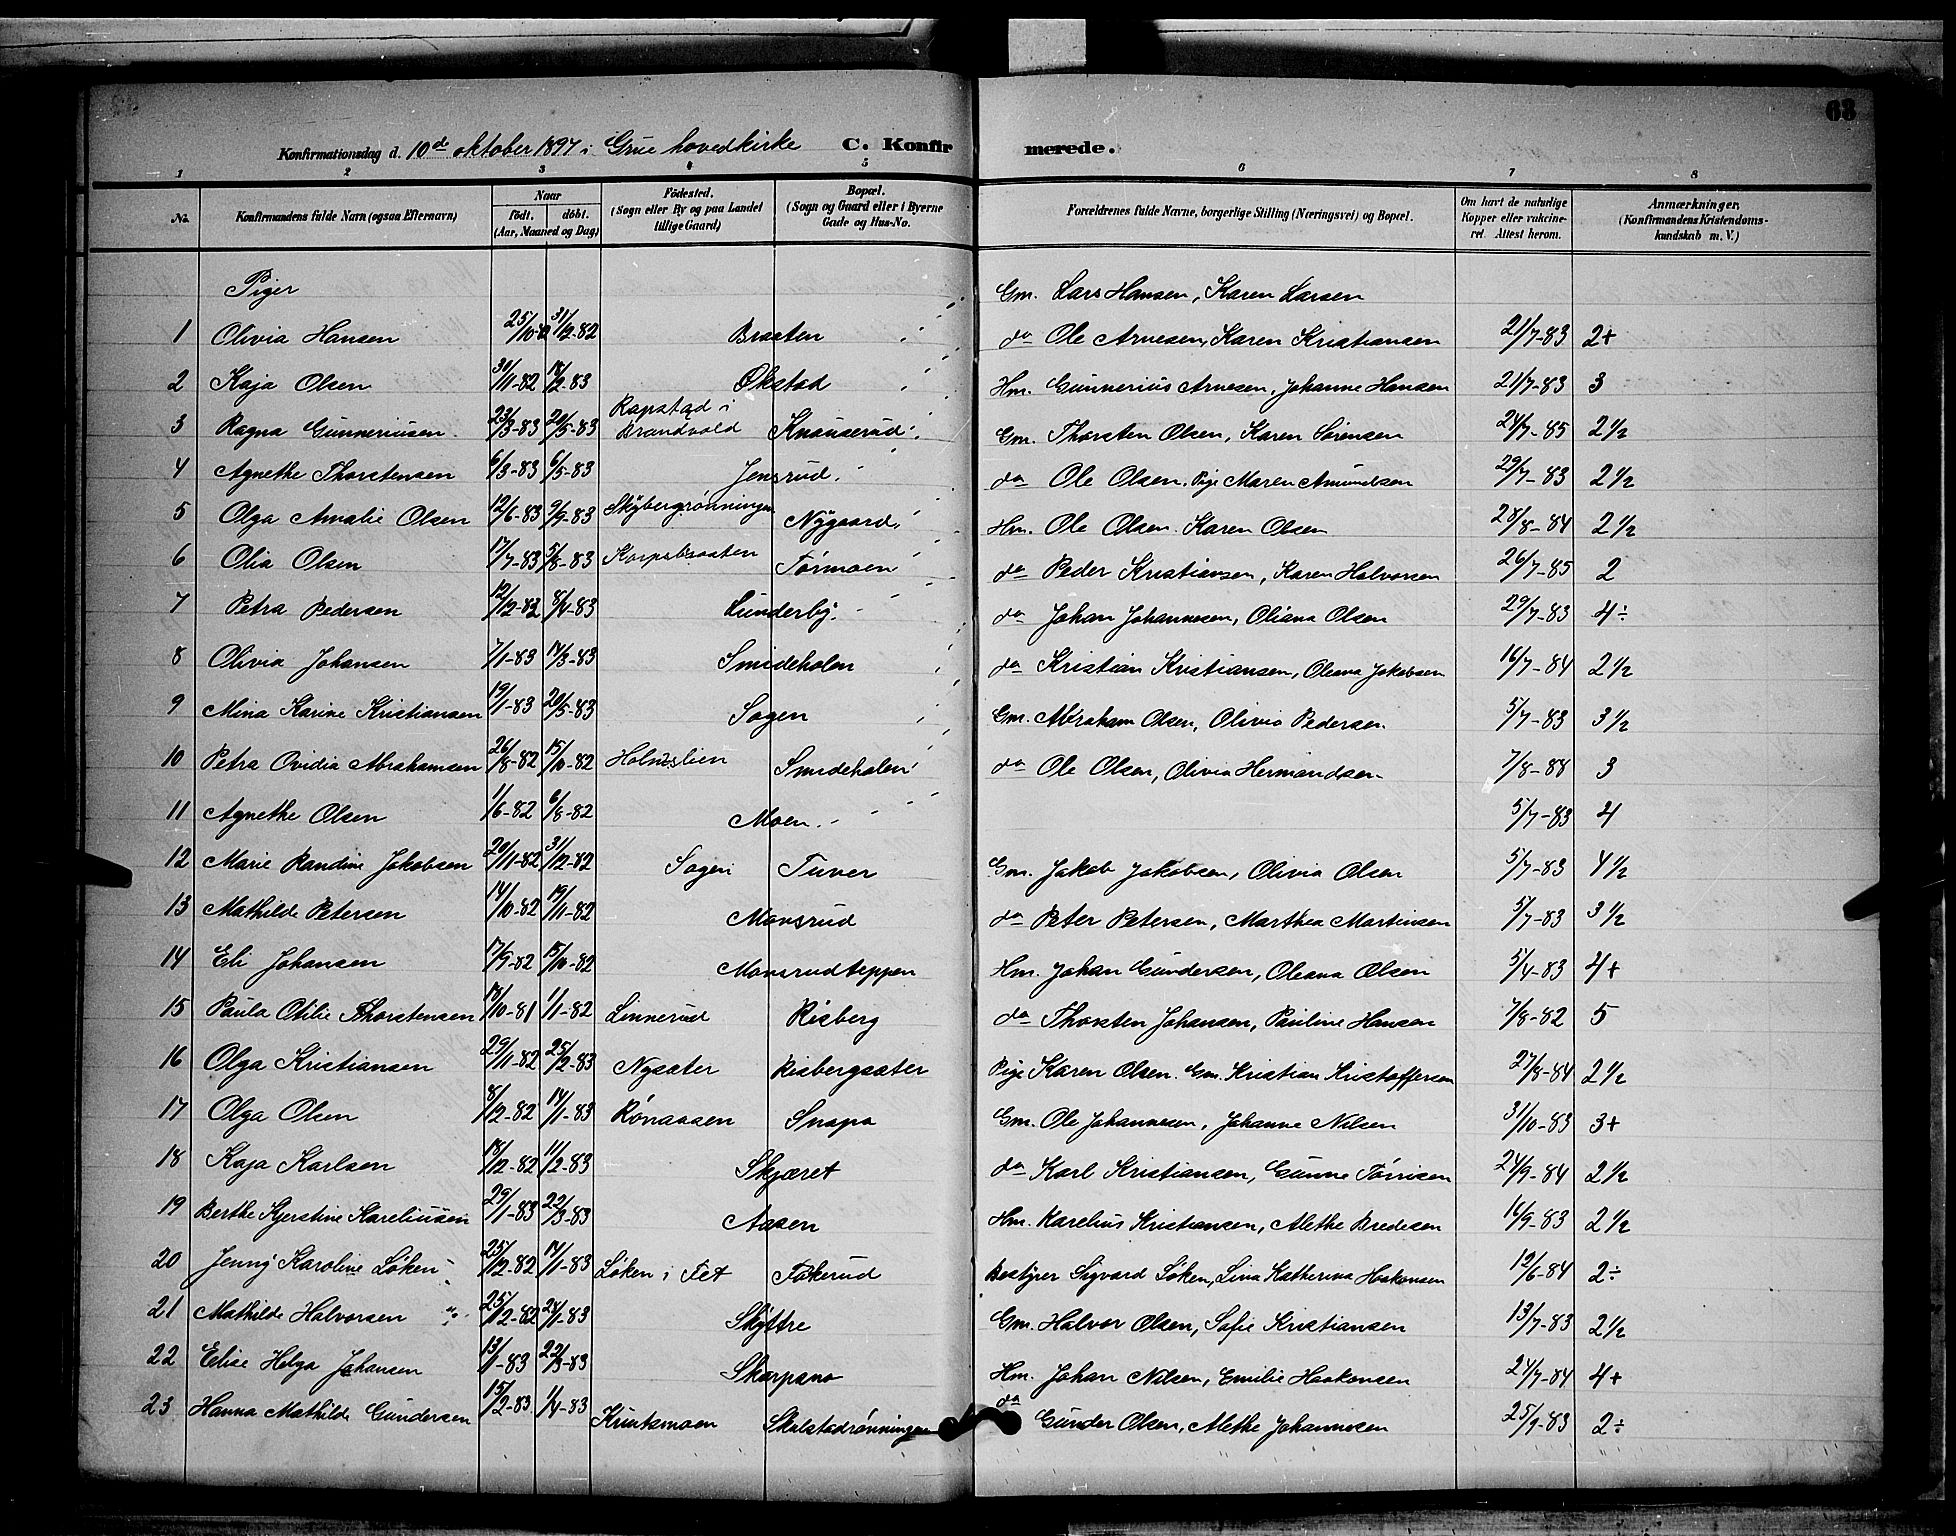 68
Konfirmationsdag d. 10de oktober 1897 i Grue hovedkirke C. Konfirmerede.
1 2 3 4 5 6 7 8
No. Konfirmandens fulde Navn (ogsaa Efternavn) Naar födt. döbt. (Aar, Maaned og Dag) Födested. (Sogn eller By og paa Landet tillige Gaard) Bopæl. (Sogn og Gaard eller i Byerne Gade og Hus-No. Forældrenes fulde Navne, borgerlige Stilling (Næringsvei) og Bopæl. Om havt de naturlige Kopper eller vakcineret. Attest herom. Anmærkninger. (Konfirmandens Kristendomskundskab m. V.)
Piger Gm. Lars Hansen, Karen Larsen
1 Olivia Hansen 25/10-82 31/12-82 Braaten do Ole Arnesen, Karen Kristiansen 21/7-83 2+
2 Kaja Olsen 30/11-82 18/2-83 Økstad Hm. Gunnerius Arnesen, Johanne Hansen 21/7-83 3
3 Ragna Gunneriusen. 23/3-83 20/5-83 Rapstad i Brandvold Knauserud Gm. Thorsten Olsen, Karen Sørensen 24/7-85 2 1/2
4 Agnethe Thorstensen 6/3-83 6/5-83 Jensrud do Ole Olsen. Pige Maren Amundsen 29/7-83 2 1/2
5 Olga Amalie Olsen 12/6-83 9/9-83 Skybergrønningen Nygaard Hm. Ole Olsen. Karen Olsen 28/8-84 2 1/2
6 Olia Olsen 17/7-83 5/8-83 Korpsbraaten Tørmoen do Peder Kristiansen, Karen Halvorsen 26/7-85 2
7 Petra Pedersen 12/12-82 8/4-83 Lunderby do Johan Johannesen, Oliana Olsen 29/7-83 4÷
8 Olivia Johansen 7/1-83 14/3-83 Smideholen do Kristian Kristiansen, Oleana Jakobsen 16/7-84 2 1/2
9 Mina Karine Kristiansen 19/1-83 20/5-83 Sogen Gm. Abraham Olsen, Olivia Pedersen 5/7-83 3 1/2
10 Petra Ovidia Abrahamsen 26/8-82 15/10-82 Holmslien Smideholen do Ole Olsen, Olivia Hermandsen 7/8-88 3
11 Agnethe Olsen 1/6-82 6/8-82 Moen 5/7-83 4
12 Marie Randine Jakobsen 20/11-82 31/12-82 Sogen Tuver Gm. Jakob Jakobsen, Olivia Olsen 5/7-83 4 1/2
13 Mathilde Petersen 14/10-82 19/11-82 Monsrud do Peter Petersen, Marthea Martinsen 5/7-83 3 1/2
14 Eli Johansen 17/9-82 15/10-82 Monsrudteppen Hm. Johan Gundersen, Oleana Olsen 5/4-83 4+
15 Paula Otilie Thorstensen 18/10-81 1/1-82 Linnerud Risberg do Thorsten Johansen, Pauline Hansen 7/8-82 5
16 Olga Kristiansen 29/11-82 25/2-83 Nysæter Risbergsæter Pige Karen Olsen. Gm. Kristian Kristoffersen 27/8-84 2 1/2
17 Olga Olsen 8/12-82 14/1-83 Rønaasen Snapa Gm. Ole Johannesen, Johanne Nilsen 31/10-83 3+
18 Kaja Karlsen 18/12-82 11/2-83 Skjæret do Karl Kristiansen, Gunne Tørrisen 24/9-84 2 1/2
19 Berthe Kjerstine Kareliusen 29/1-83 22/3-83 Aasen Hm. Karelius Kristiansen, Alethe Bredesen 16/9-83 2 1/2
20 Jenny Karoline Løken 25/12-82 14/1-83 Løken i Fet Tokerud Bestyrer Sigvard Løken, Lina Katherina Haakonsen 12/6-84 2÷
21 Mathilde Halvorsen 25/12-82 28/1-83 Skyttre Gm. Halvor Olsen, Sofie Kristiansen 13/7-83 2 1/2
22 Elise Helga Johansen 13/1-83 22/3-83 Skarpano Hm. Johan Nilsen, Emilie Haakonsen 24/7-84 4+
23 Hanna Mathilde Gundersen 15/2-83 1/4-83 Knutsmoen Skulstadrønningen do Gunder Olsen, Alethe Johannesen 25/9-83 2÷